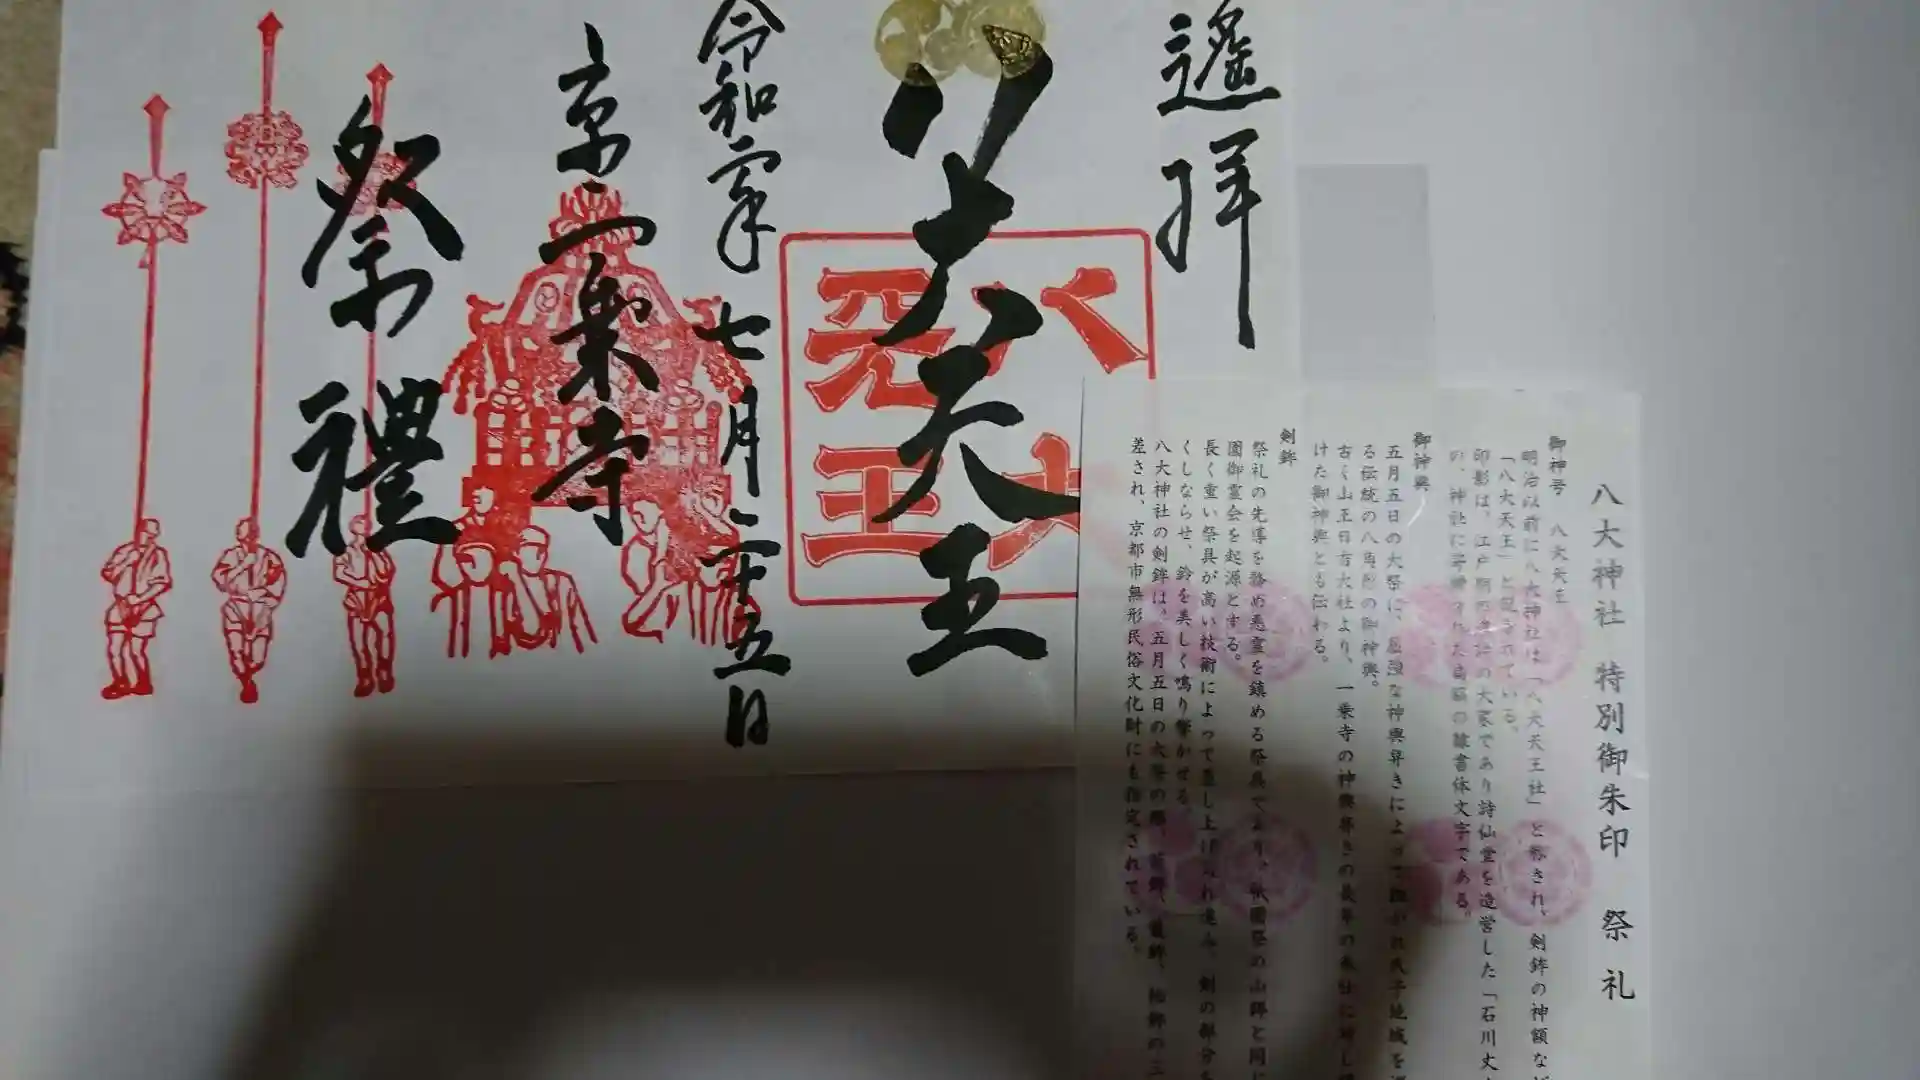 遙拝
八大天王
八大
天王
令和二年七月二十五日
京一乗寺
祭禮
八大神社 特別御朱印 祭礼
御神号 八大天王
明治以前に八大神社は「八大天王社」と称され、剣鉾の神額など
「八大天王」と記されている。
印影は、江戸期の漢詩の大家であり詩仙堂を造営した「石川丈
の、神社に寄贈された扁額の隷書体文字である。
御神輿
五月五日の大祭に、屈強な神輿舁きによって担がれ氏子地域を
る伝統の八角形の御神輿。
古く山王日吉大社より、一乗寺の神輿舁きの長年の奉仕に対し
けた御神輿とも伝わる。
剣鉾
祭礼の先導を務め悪霊を鎮める祭具であり、祇園祭の山鉾と同じ
園御霊会を起源とする。
長く重い祭具が高い技術によって差し上げられ進み、剣の部分を
くしならせ、鈴を美しく鳴り響かせる。
八大神社の剣鉾は、五月五日の大祭の際、
差され、京都市無形民俗文化財にも指定されている。